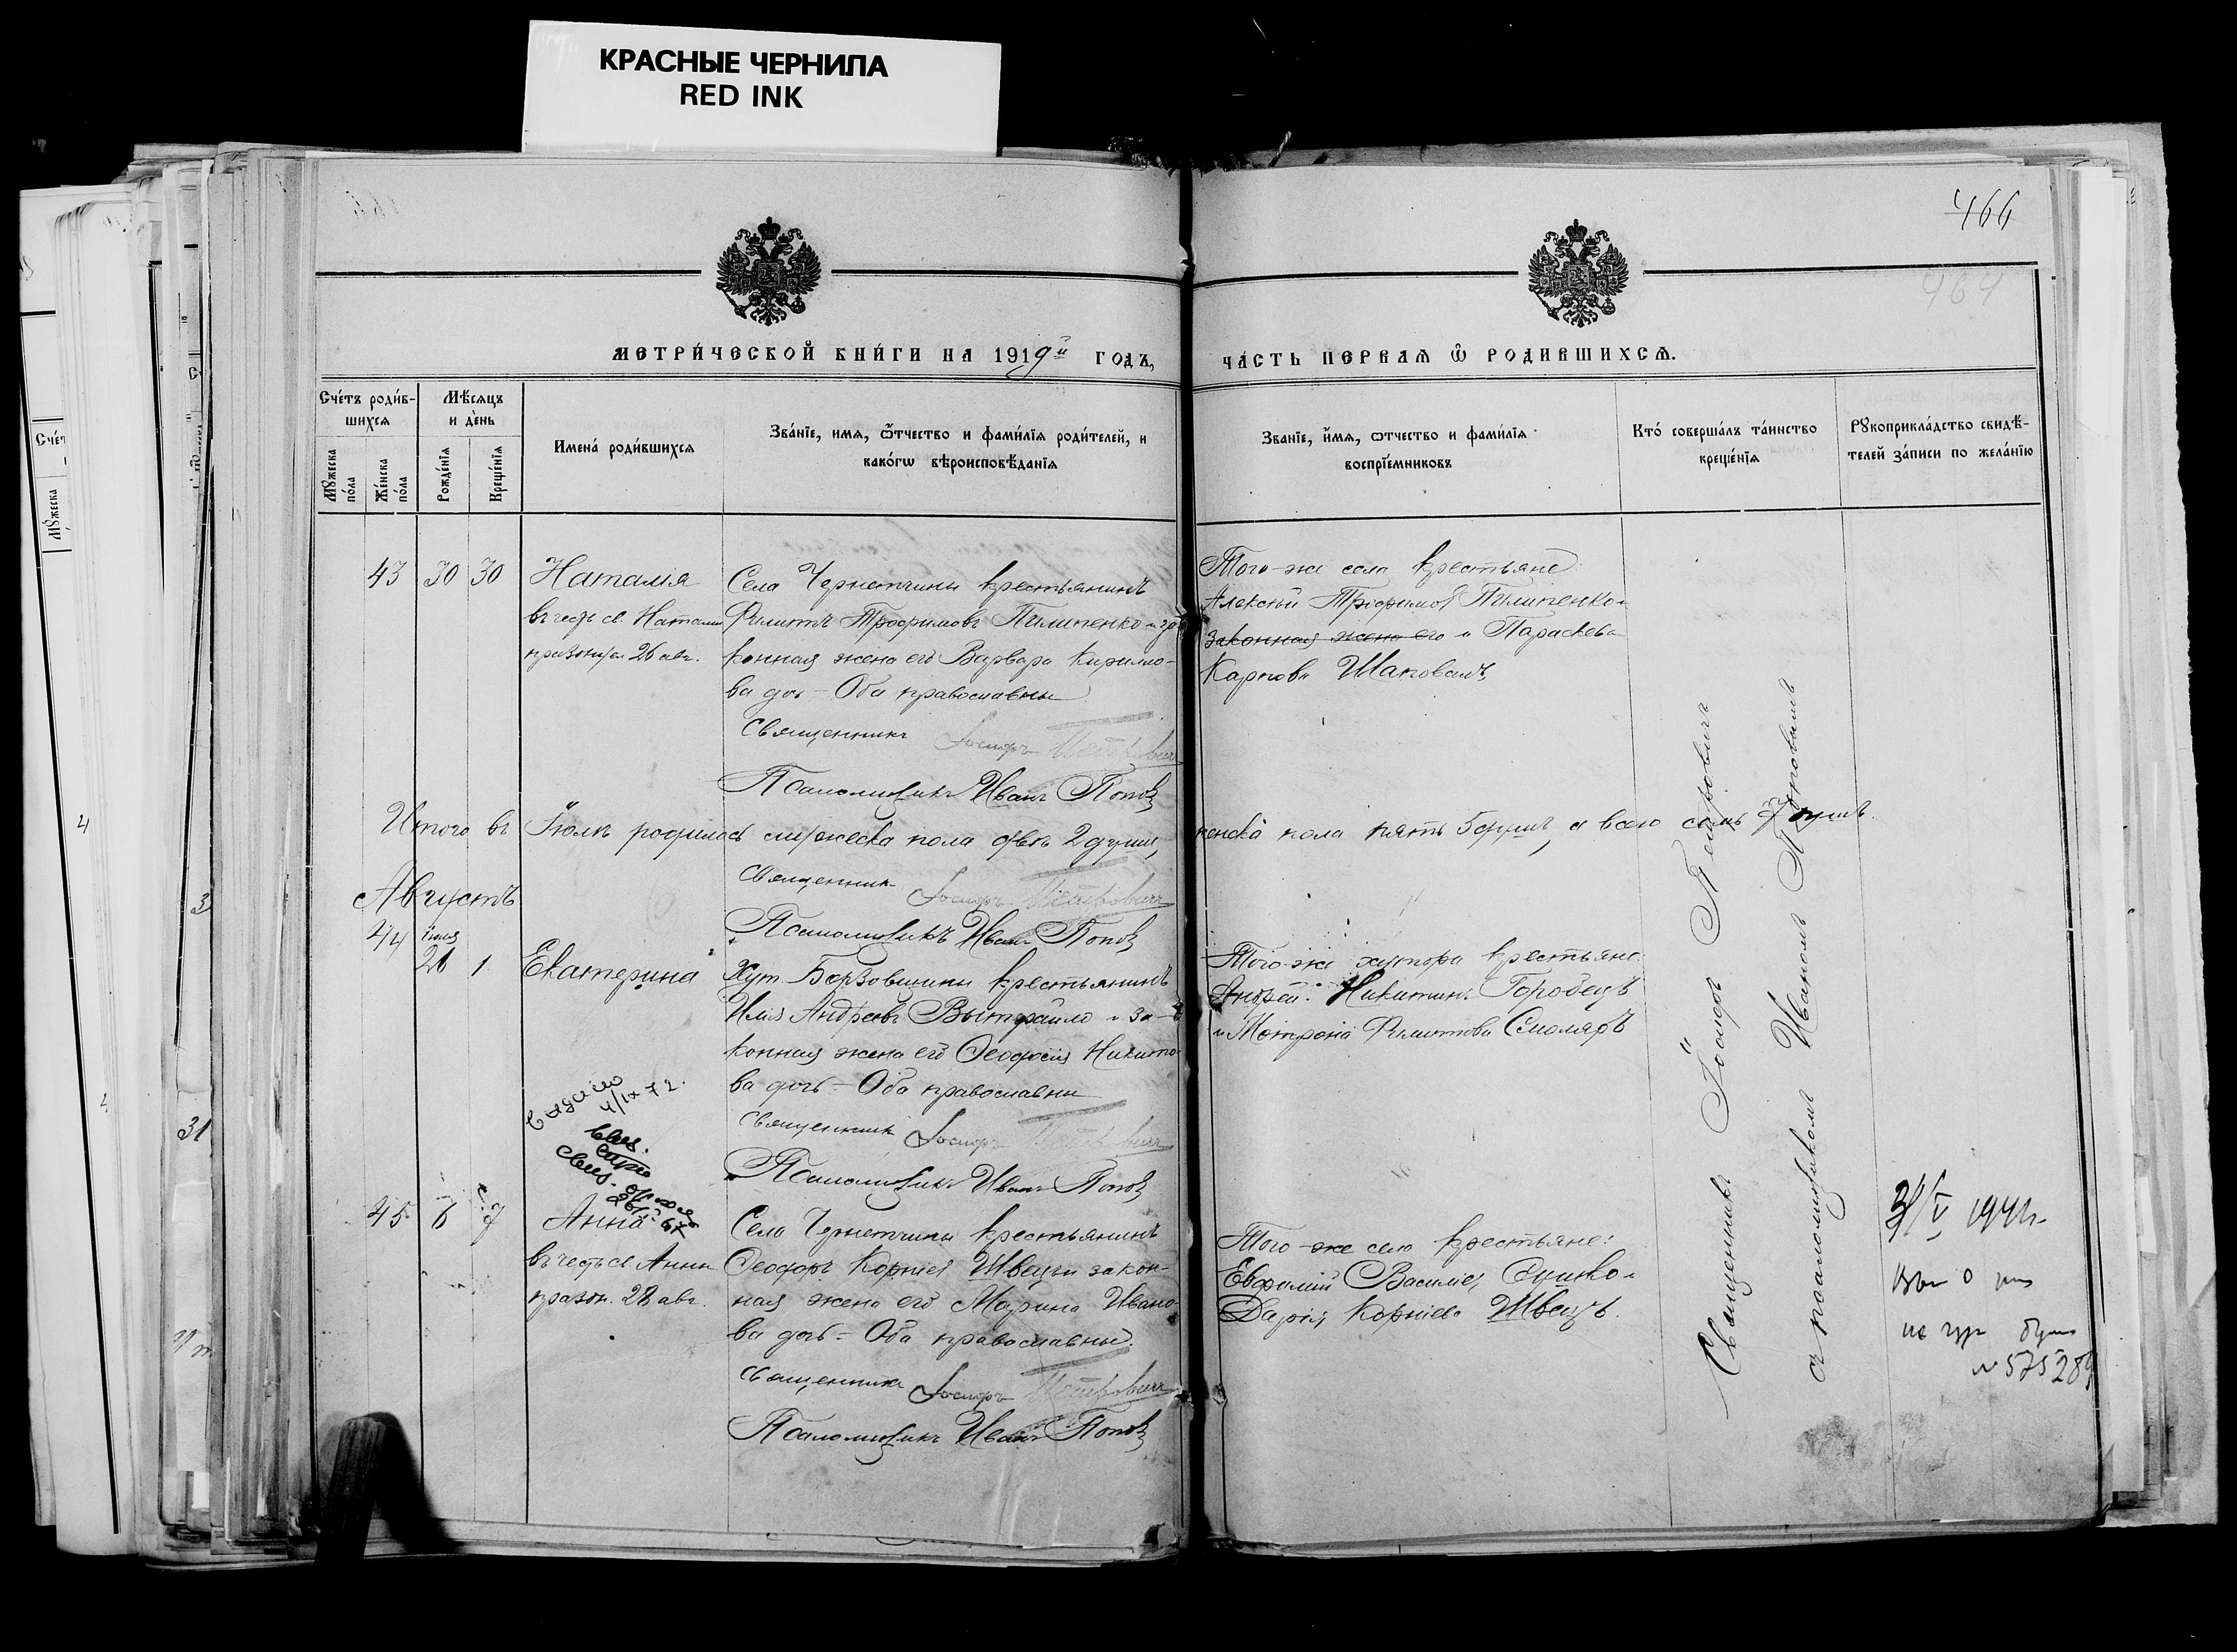 КРАСНЫЕ ЧЕРНИЛА
RED INK
466
464
МЕТРИ́ЧЕСКОЙ КНИ́ГИ НА 1919й ГОДЪ,
ЧА́СТЬ ПЕРВАѦ Ѽ РОДИВШИХСѦ.
Сче́тъ роди́в-
шихсѧ
Мѣ́сѧцъ
и де́нь
Мꙋ́жеска
по́ла
Же́нска
по́ла
Рожде́нїѧ
Креще́нїѧ
Имена́ роди́вшихсѧ
Зва́нїе, имѧ, ѻ҆́тчество и фами́лїѧ роди́телей, и
како́гѡ вѣроисповѣ́данїѧ
Зва́нїе, и́мѧ, ѻтчество и фами́лїѧ
воспрїе́мниковъ
Кто́ соверша́лъ та́инство
креще́нїѧ
Рꙋкоприкла́дство свидѣ́-
телей за́писи по жела́нїю
43 30 30
Наталія
въ честь св. Наталіи
26 авг.
Села Чернетчины крестьянинъ
Филиппъ Трофимовъ Пилипенко и за-
конная жена его Варвара Кирилло-
ва дочь – Оба православны
Священникъ Іосифъ Петровичъ
Псаломщикъ Иванъ Попов
Того-же села крестьяне:
Алексѣй Трофимов Пилипенко и
законная жена его и Параскева
Карпова Шаповалъ
Итого въ Іюлѣ родилось мужеска пола два 2 души,
женска пола пять 5 душъ, а всего семь 7 душъ.
Священникъ Іосифъ Петровичъ
Псаломщикъ Иванъ Попов
Августъ
44 іюля
1
Екатерина
Хут. Борзовщины крестьянинъ
Илія Андреевъ и за-
конная жена его Ѳеодосія Никито-
ва дочь – Оба православны
Священникъ Іосифъ Петровичъ
Псаломщикъ Иванъ Попов
Того-же хутора крестьяне
Андрей Никитинъ Городецъ
и Мотрона Филиппова Смоляръ
4/IX 72.
45 6 7
Анна
въ честь св. Анны
28 авг.
Села Чернетчины крестьянинъ
Ѳеодоръ Корніев Швецъ и закон-
ная жена его Марина Ивано-
ва дочь – Оба православны.
Священникъ Іосифъ Петровичъ
Псаломщикъ Иванъ Попов
Того-же села крестьяне:
Евфимій Василіев
Дарія Корніева Швецъ.
Священникъ Іосифъ Петровичъ
съ псаломщикомъ Иваномъ Поповымъ
№575289